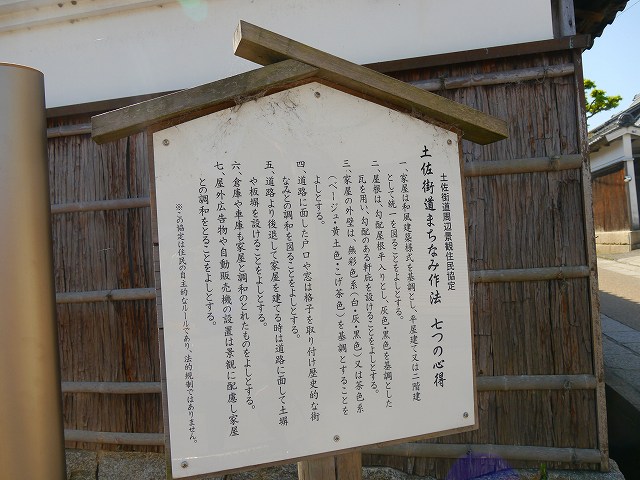 土佐街道周辺景観住民協定
土佐街道まちなみ作法 七つの心得
一、家屋は和風建築様式を基調とし、平屋建て又は二階建
として統一を図ることをよしとする。
二、屋根は、勾配屋根平入りとし、灰色・黒色を基調とした
瓦を用い、勾配のある軒庇を設けることをよしとする。
三、家屋の外壁は、無彩色系（白・灰・黒色）又は茶色系
（ベージュ・黄土色・こげ茶色）を基調とすることを
よしとする。
四、道路に面した戸口や窓は格子を取り付け歴史的な街
なみとの調和を図ることをよしとする。
五、道路より後退して家屋を建てる時は道路に面して土塀
や板塀を設けることをよしとする。
六、倉庫や車庫も家屋と調和のとれたものをよしとする。
七、屋外広告物や自動販売機の設置は景観に配慮し家屋
との調和をとることをよしとする。
※この協定は住民の自主的なルールであり、法的規制ではありません。